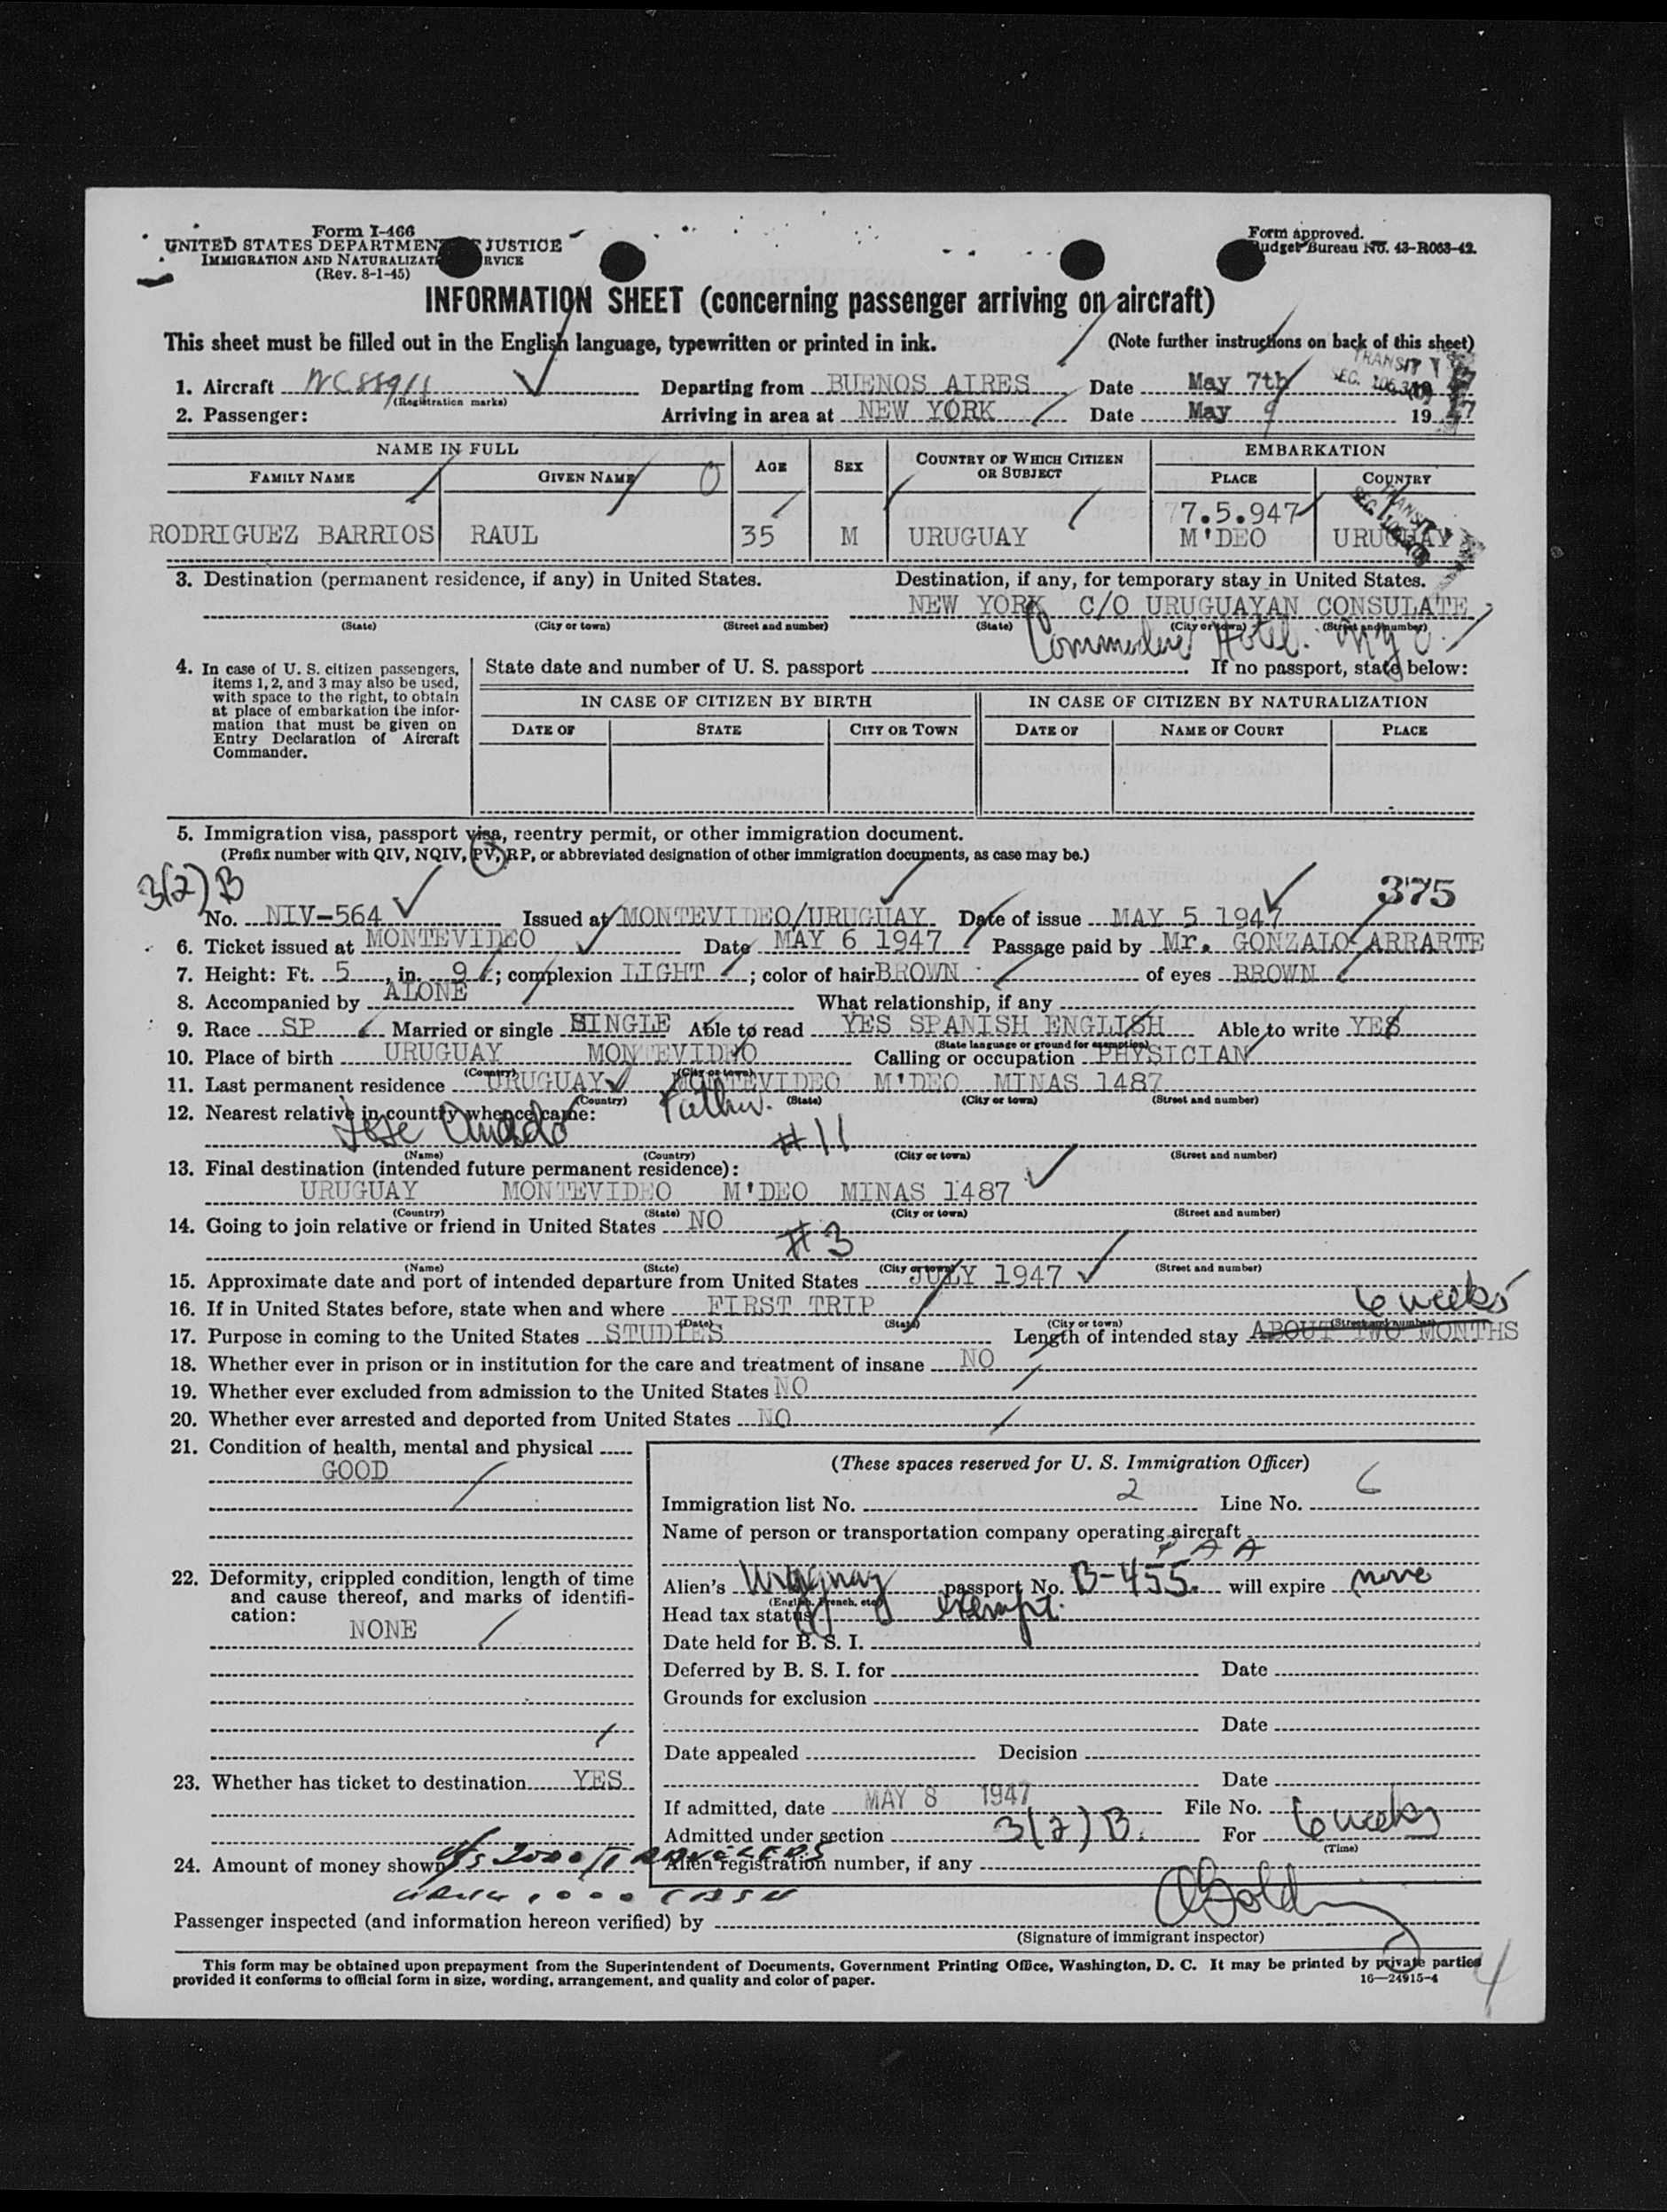 Form I-466
UNITED STATES DEPARTMENT JUSTICE
IMMIGRATION AND NATURALIZAT RVICE
(Rev. 8-1-45)
Form approved.
udget Bureau No. 43-R063-42.
INFORMATION SHEET (concerning passenger arriving on aircraft)
This sheet must be filled out in the English language, typewritten or printed in ink. (Note further instructions on back of this sheet)
TRANSIT
SEC. 106.3
1. Aircraft Departing from BUENOS AIRES Date May 7th 19 47
(Registration marks)
2. Passenger: Arriving in area at NEW YORK Date May 9 19 47
NAME IN FULL AGE SEX COUNTRY OF WHICH CITIZEN OR SUBJECT EMBARKATION
FAMILY NAME GIVEN NAME PLACE COUNTRY
0
7.5.947
RODRIGUEZ BARRIOS RAUL 35 M URUGUAY M'DEO URUGUAY
TRANSIT
3. Destination (permanent residence, if any) in United States. Destination, if any, for temporary stay in United States.
NEW YORK C/O URUGUAYAN CONSULATE
(State) (City or town) (Street and number) (State) (City or town) (Street and number)
Commodore Hotel. N.Y.C.
4. In case of U. S. citizen passengers, items 1, 2, and 3 may also be used, with space to the right, to obtain at place of embarkation the information that must be given on Entry Declaration of Aircraft Commander.
State date and number of U. S. passport If no passport, state below:
IN CASE OF CITIZEN BY BIRTH IN CASE OF CITIZEN BY NATURALIZATION
DATE OF STATE CITY OR TOWN DATE OF NAME OF COURT PLACE
5. Immigration visa, passport visa, reentry permit, or other immigration document.
(Prefix number with QIV, NQIV, PV, RP, or abbreviated designation of other immigration documents, as case may be.)
3(2)B
375
No. NIV-564 Issued at MONTEVIDEO/URUGUAY Date of issue MAY 5 1947
6. Ticket issued at MONTEVIDEO Date MAY 6 1947 Passage paid by Mr. GONZALO ARRARTE
7. Height: Ft. 5, in. 9; complexion LIGHT; color of hair BROWN of eyes BROWN
8. Accompanied by ALONE What relationship, if any
9. Race SP Married or single SINGLE Able to read YES SPANISH ENGLISH Able to write YES
(State language or ground for exemption)
10. Place of birth URUGUAY MONTEVIDEO Calling or occupation PHYSICIAN
(Country) (City or town)
11. Last permanent residence URUGUAY MONTEVIDEO M'DEO MINAS 1487
(Country) (State) (City or town) (Street and number)
12. Nearest relative in country whence came: Father.
Jose #11
(Name) (Country) (City or town) (Street and number)
13. Final destination (intended future permanent residence):
URUGUAY MONTEVIDEO M'DEO MINAS 1487
(Country) (State) (City or town) (Street and number)
14. Going to join relative or friend in United States NO
#3
(Name) (State) (City or town) (Street and number)
15. Approximate date and port of intended departure from United States JULY 1947
16. If in United States before, state when and where FIRST TRIP
6 weeks
(Date) (State) (City or town) (Street and number)
17. Purpose in coming to the United States STUDIES Length of intended stay ABOUT TWO MONTHS
18. Whether ever in prison or in institution for the care and treatment of insane NO
19. Whether ever excluded from admission to the United States NO
20. Whether ever arrested and deported from United States NO
21. Condition of health, mental and physical
GOOD
22. Deformity, crippled condition, length of time and cause thereof, and marks of identification:
NONE
23. Whether has ticket to destination YES
24. Amount of money shown
(These spaces reserved for U. S. Immigration Officer)
Immigration list No. 2 Line No. 6
Name of person or transportation company operating aircraft
PAA
Alien's Uruguay passport No. B-455. will expire none
(English, French, etc.)
Head tax status exempt.
Date held for B. S. I.
Deferred by B. S. I. for Date
Grounds for exclusion
Date
Date appealed Decision
Date
If admitted, date MAY 8 1947 File No.
Admitted under section 3(2)B. For 6 weeks
(Time)
Alien registration number, if any
Passenger inspected (and information hereon verified) by
(Signature of immigrant inspector)
This form may be obtained upon prepayment from the Superintendent of Documents, Government Printing Office, Washington, D. C. It may be printed by private parties
provided it conforms to official form in size, wording, arrangement, and quality and color of paper. 16—24915-4
4